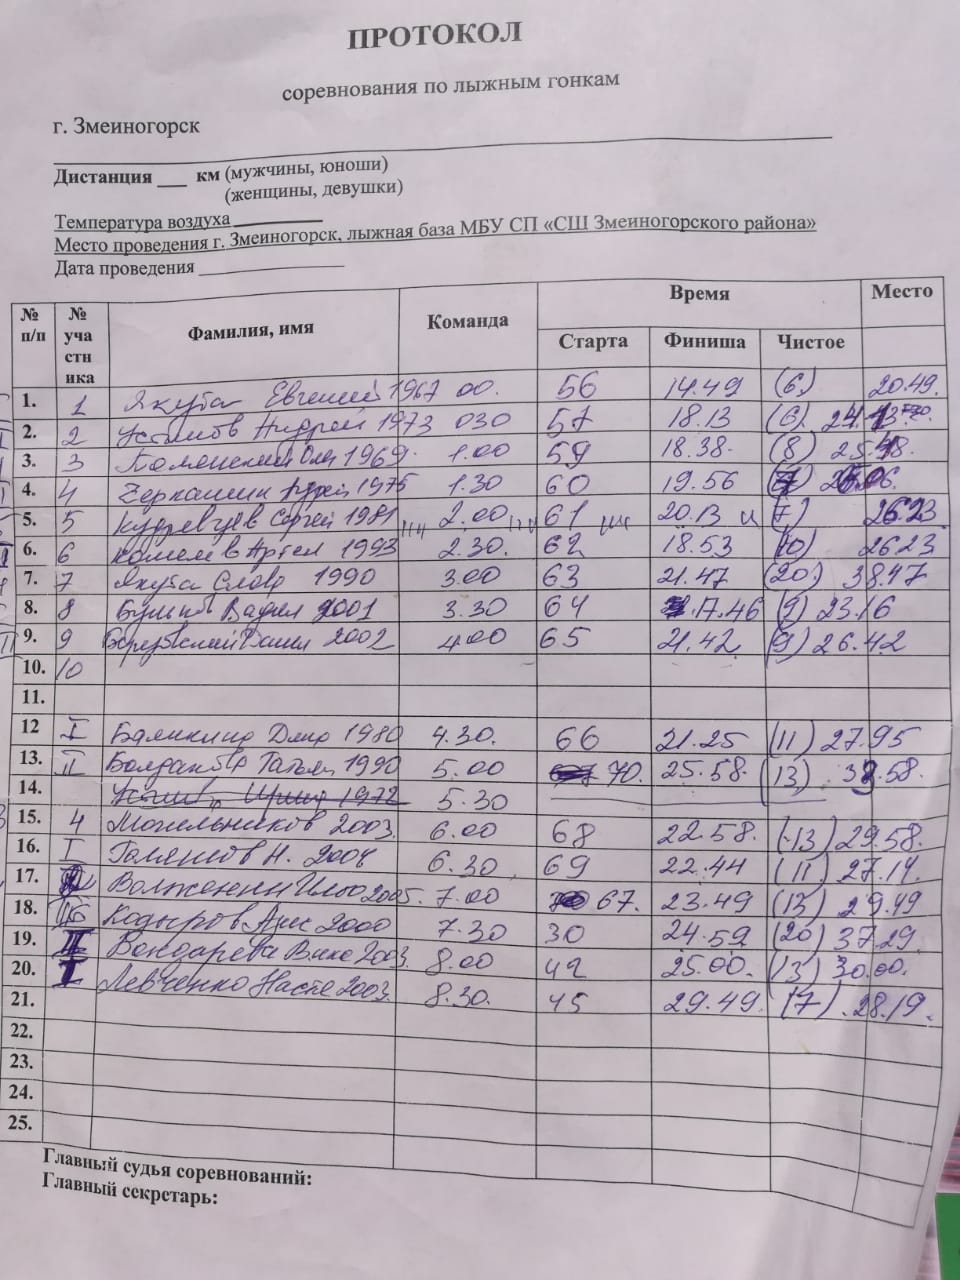 ПРОТОКОЛ
соревнования по лыжным гонкам
г. Змеиногорск
Дистанция ___ км (мужчины, юноши)
(женщины, девушки)
Температура воздуха
Место проведения г. Змеиногорск, лыжная база МБУ СП «СШ Змеиногорского района»
Дата проведения
№ п/п № участника Фамилия, имя Команда Время Место
Старта Финиша Чистое
1. 1 Якута Евгений 1967 00. 56 14.49 (6) 20.49.
2. 2 Устинов Андрей 1973 030 57 18.13 (6)
3. 3 1969. 1.00 59 18.38. (8)
4. 4 1975 1.30 60 19.56
5. 5 Кудревцев Сергей 1981 2.00 61 20.13 (7) 26.23
6. 6 Артем 1993 2.30. 62 18.53 (10) 26.23
7. 7 Якута Слава 1990 3.00 63 21.47 (20) 38.47
8. 8 Вадим 2001 3.30 64 17.46 (9) 23.16
9. 9 2002 4.00 65 21.42 (9) 26.42
10. 10
11.
12 I 1980 4.30. 66 21.25 (11) 27.95
13. II 1990 5.00 70. 25.58. (13) .58.
14. 1972 5.30
15. 4 Могильников 2003. 6.00 68 22.58. (13) 29.58
16. I Н. 2004 6.30 69 22.44 (11) 27.14.
17. 2005. 7.00 67. 23.49 (13) 29.49
18. Кадыров 2000 7.30 30 24.59 (20) 37.29
19. II Бондарева Вика 2003. 8.00 42 25.00. (13) 30.00.
20. I Левченко Настя 2003. 8.30. 45 29.49. (7) 28.19.
21.
22.
23.
24.
25.
Главный судья соревнований:
Главный секретарь: